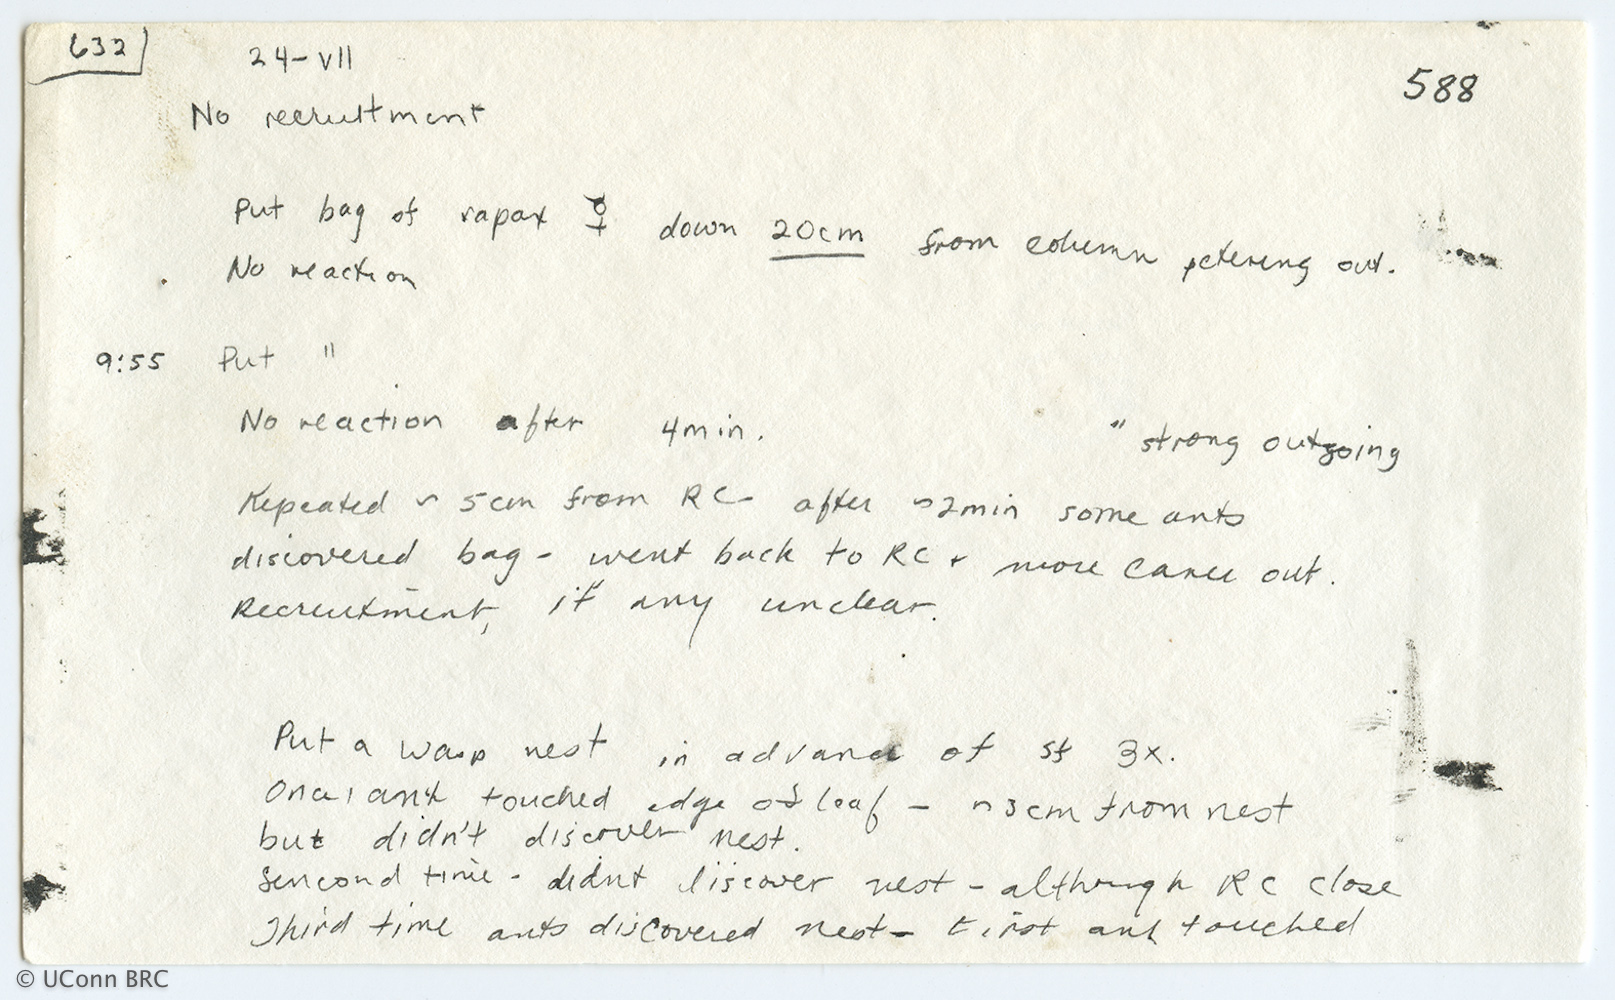 632
24-VII
588
No recruitment
Put bag of rapax ☿ down 20cm from column petering out.
No reaction
9:55 Put "
No reaction after 4min. " strong outgoing
Repeated ~ 5cm from RC after ~2min some ants
discovered bag - went back to RC + more came out.
Recruitment, if any unclear.
Put a wasp nest in advance of sf 3x.
Once 1 ant touched edge of leaf - ~3cm from nest
but didn't discover nest.
Sencond time - didnt discover nest - although RC close
Third time ants discovered nest - First ant touched
© UConn BRC